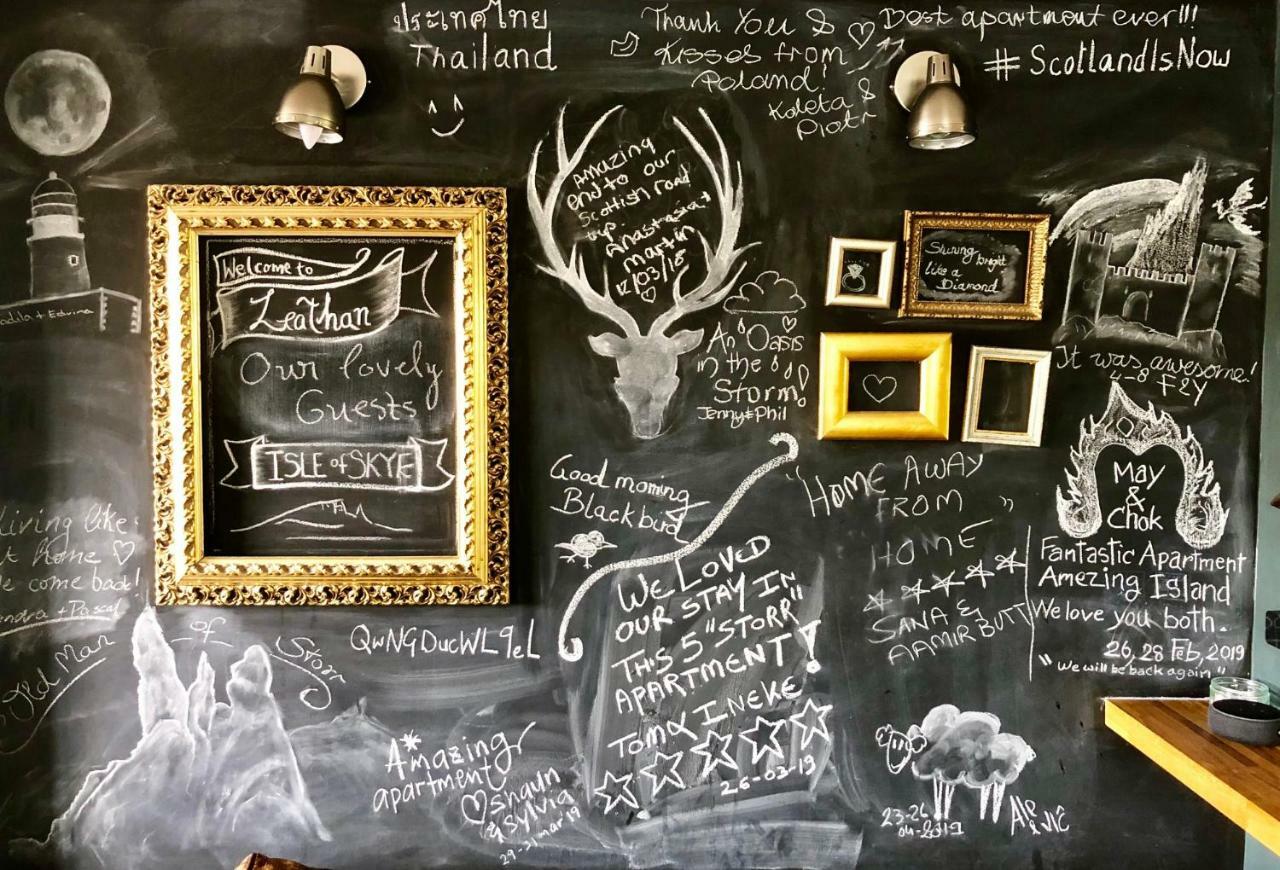 ประเทศไทย
Thailand
Thank You &
Kisses from
Poland!
Koleta &
Piotr
Best apartment ever!!!
#ScotlandIsNow
Amazing
end to our
Scottish road
trip
Anastasia &
Martin
12/03/18
Welcome to
Leathan
Our lovely
Guests
ISLE of SKYE
Shining bright
like a
Diamond
An Oasis
in the
Storm!
Jenny & Phil
It was awesome!
4-8 F&Y
+ Edvina
Living like
home
come back!
+ Pascal
Old Man
of
Storr
QwNGDucWL9eL
Good morning
Blackbird
WE LOVED
OUR STAY IN
THIS 5 "STORR"
APARTMENT!
TOM & INEKE
26-03-19
"HOME AWAY
FROM "
HOME
SANA &
AAMIR BUTT
May
&
Chok
Fantastic Apartment
Amezing Island
We love you both.
26, 28 Feb, 2019
"We will be back again"
Amazing
apartment
Shaun
& Sylvia
29-31 mar 19
23-26
04-2019